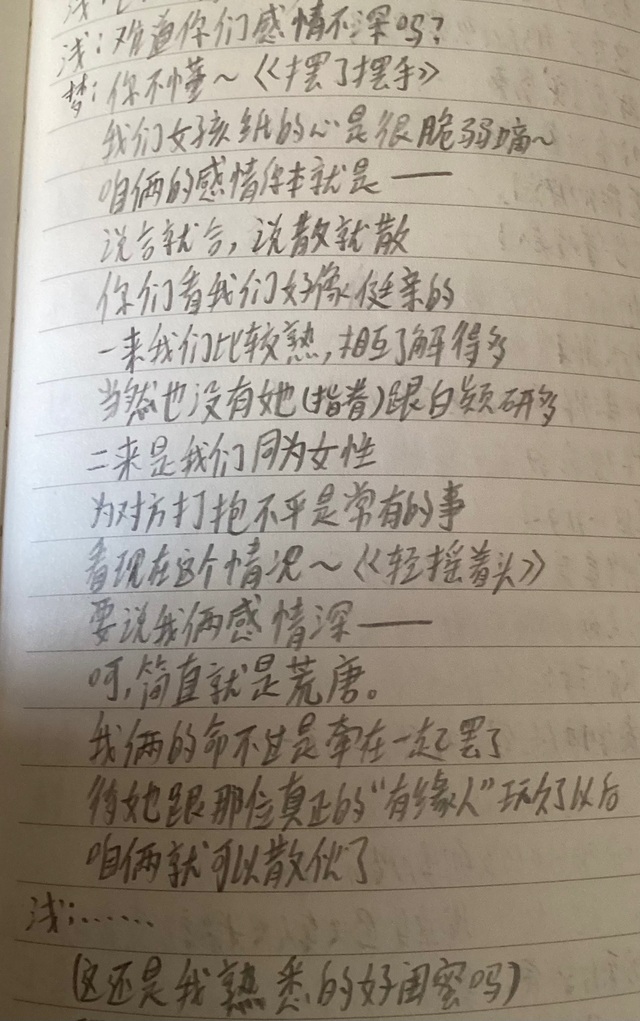 浅：难道你们感情不深吗？
梦：你不懂～《《摆了摆手》》
我们女孩纸的心是很脆弱嘀～
咱俩的感情本就是——
说合就合，说散就散
你们看我们好像挺亲的
一来我们比较熟，相互了解得多
当然也没有她(指着)跟白颖研多
二来是我们同为女性
为对方打抱不平是常有的事
看现在这个情况～《《轻摇着头》》
要说我俩感情深——
呵，简直就是荒唐。
我俩的命不过是牵在一起罢了
待她跟那位真正的“有缘人”玩欠了以后
咱俩就可以散伙了
浅：……
(这还是我熟悉的好闺蜜吗)